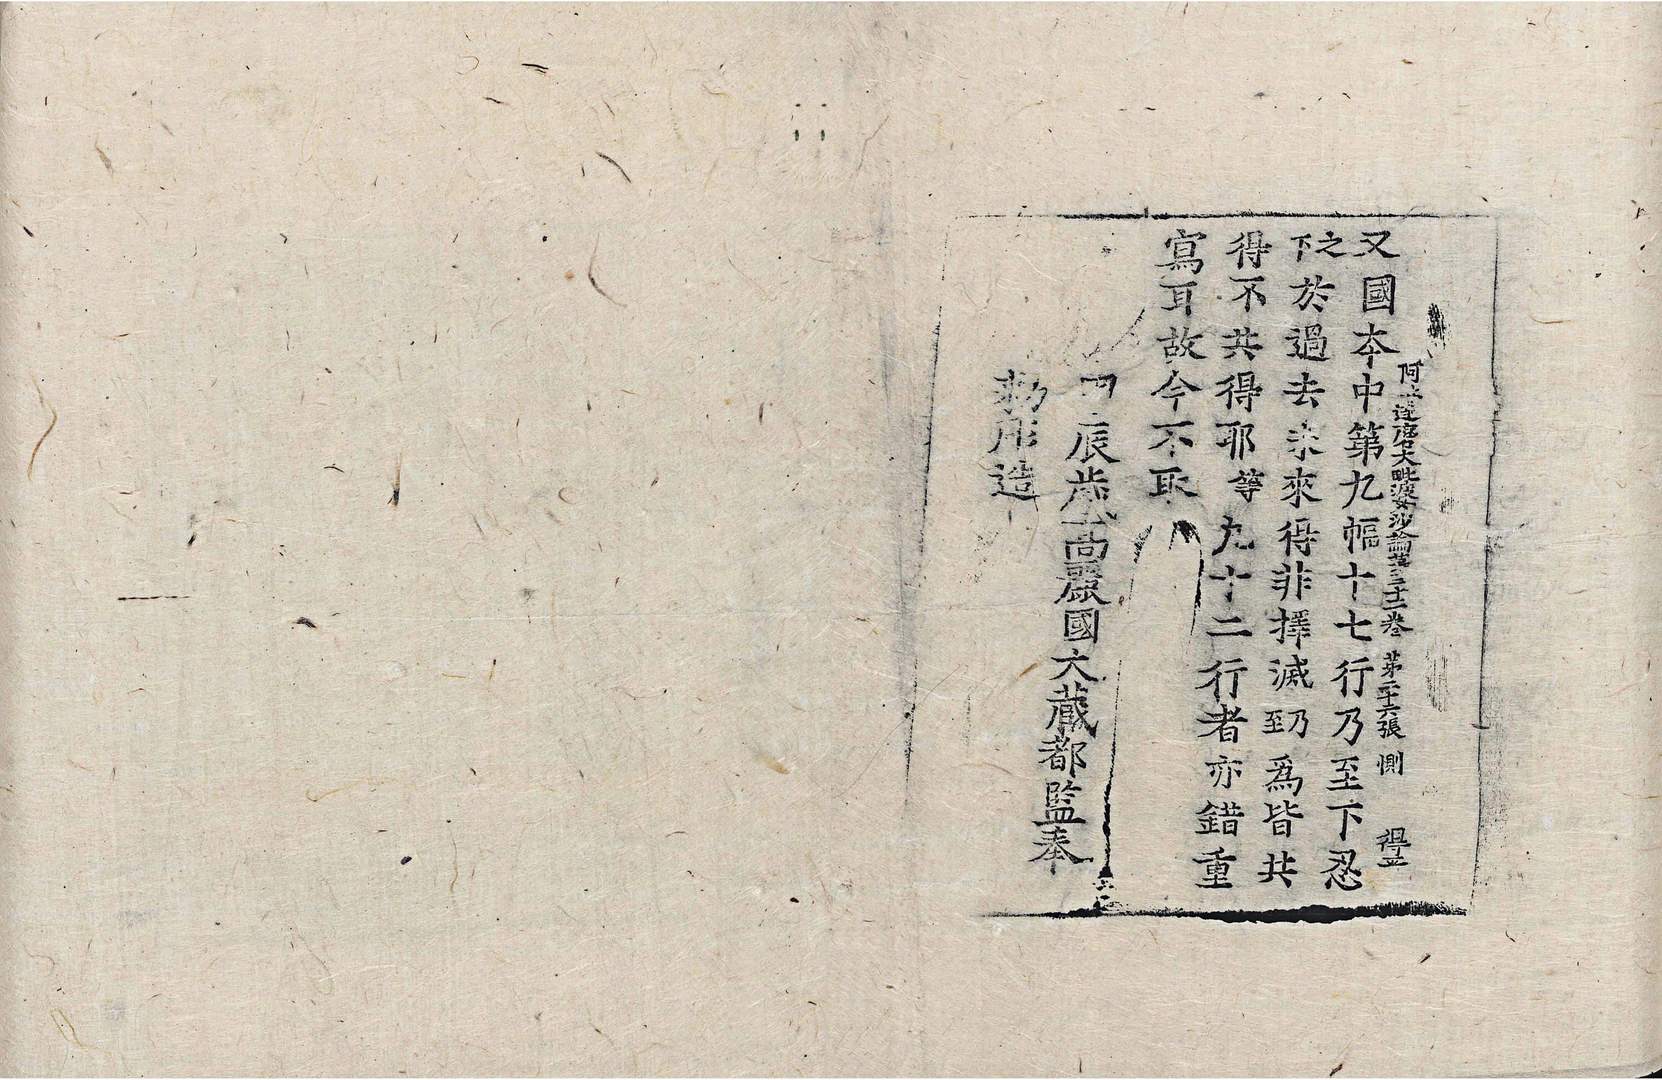 又國本中第九幅十七行乃至下忍
之下於過去未來得非擇滅乃至爲皆共
得不共得耶等九十二行者亦錯重
寫耳故今不取
阿毗達磨大毗婆沙論第三十一卷 第二十六張 惻 得平
甲辰歲高麗國大藏都監奉
勅彫造